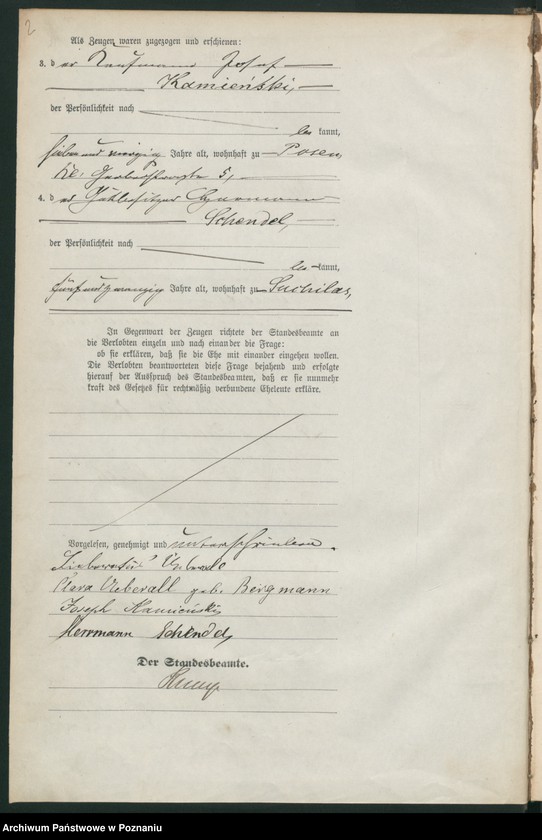 2
Als Zeugen waren zugezogen und erschienen:
3. der Kaufmann Josef
Kamieński,
der Persönlichkeit nach
be kannt,
sieben und vierzig Jahre alt, wohnhaft zu Posen,
Kl. Gerberstraße 5,
4. der Hermann
Schendel,
der Persönlichkeit nach
be kannt,
fünf und zwanzig Jahre alt, wohnhaft zu Suchilas,
In Gegenwart der Zeugen richtete der Standesbeamte an
die Verlobten einzeln und nach einander die Frage:
ob sie erklären, daß sie die Ehe mit einander eingehen wollen.
Die Verlobten beantworteten diese Frage bejahend und erfolgte
hierauf der Ausspruch des Standesbeamten, daß er sie nunmehr
kraft des Gesetzes für rechtmäßig verbundene Eheleute erkläre.
Vorgelesen, genehmigt und unterschrieben.
Ueberall
Clara Ueberall geb. Bergmann
Joseph Kamieński
Herrmann Schendel,
Der Standesbeamte.
Archiwum Państwowe w Poznaniu